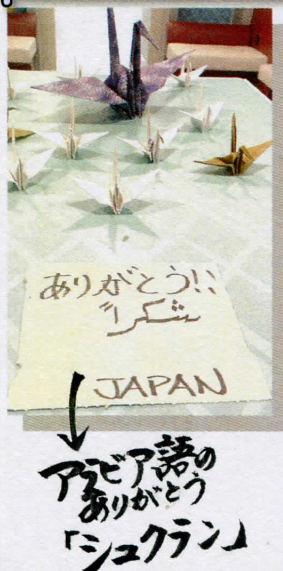 ありがとう!!
شكراً
JAPAN
アラビア語の
ありがとう
「シュクラン」